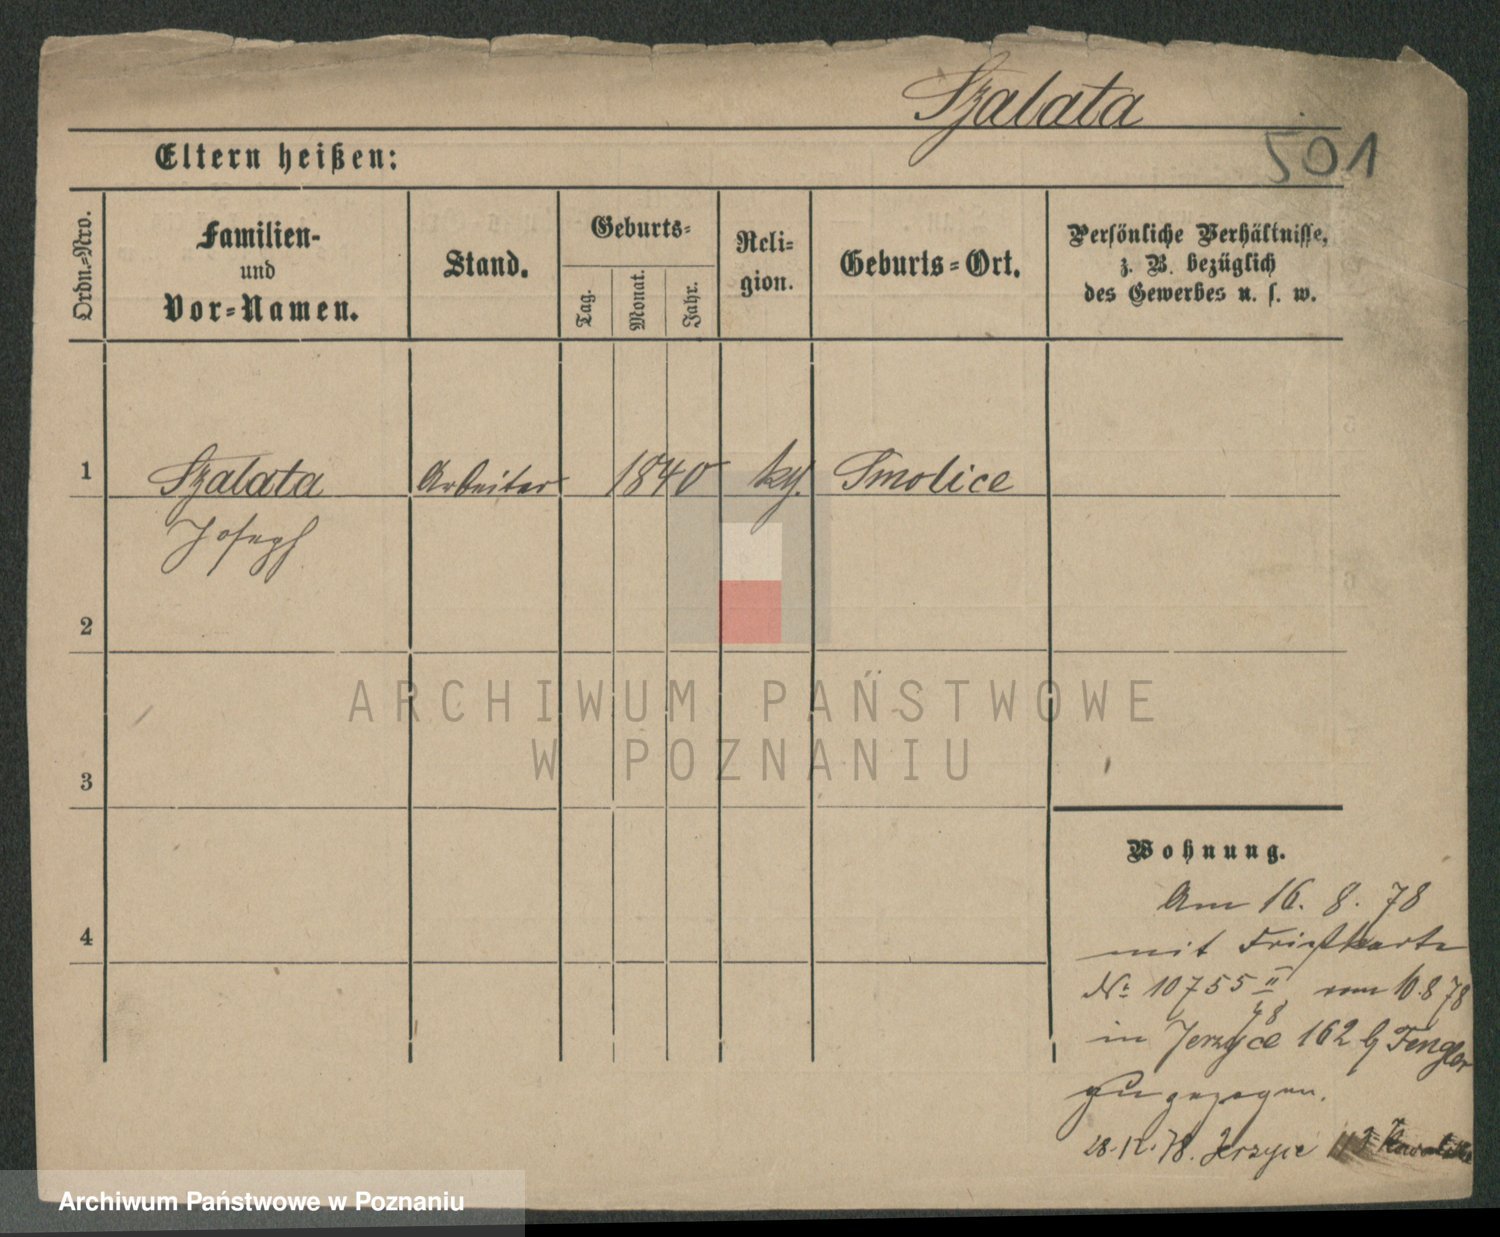 Szalata
501
Eltern heißen:
Ordn.-Nro.
Familien-
und
Vor-Namen.
Stand.
Geburts-
Tag.
Monat.
Jahr.
Reli-
gion.
Geburts-Ort.
Persönliche Verhältnisse,
z. B. bezüglich
des Gewerbes u. s. w.
1 Szalata Arbeiter 1840 Smolice
Joseph
2
ARCHIWUM PAŃSTWOWE
W POZNANIU
3
Wohnung.
Am 16. 8. 78
4
mit
No 10755 II/78 vom 10.8 78
in Jerzyce 162 b Fengler
zugezogen.
28. 12. 78. Jerzyce
Archiwum Państwowe w Poznaniu